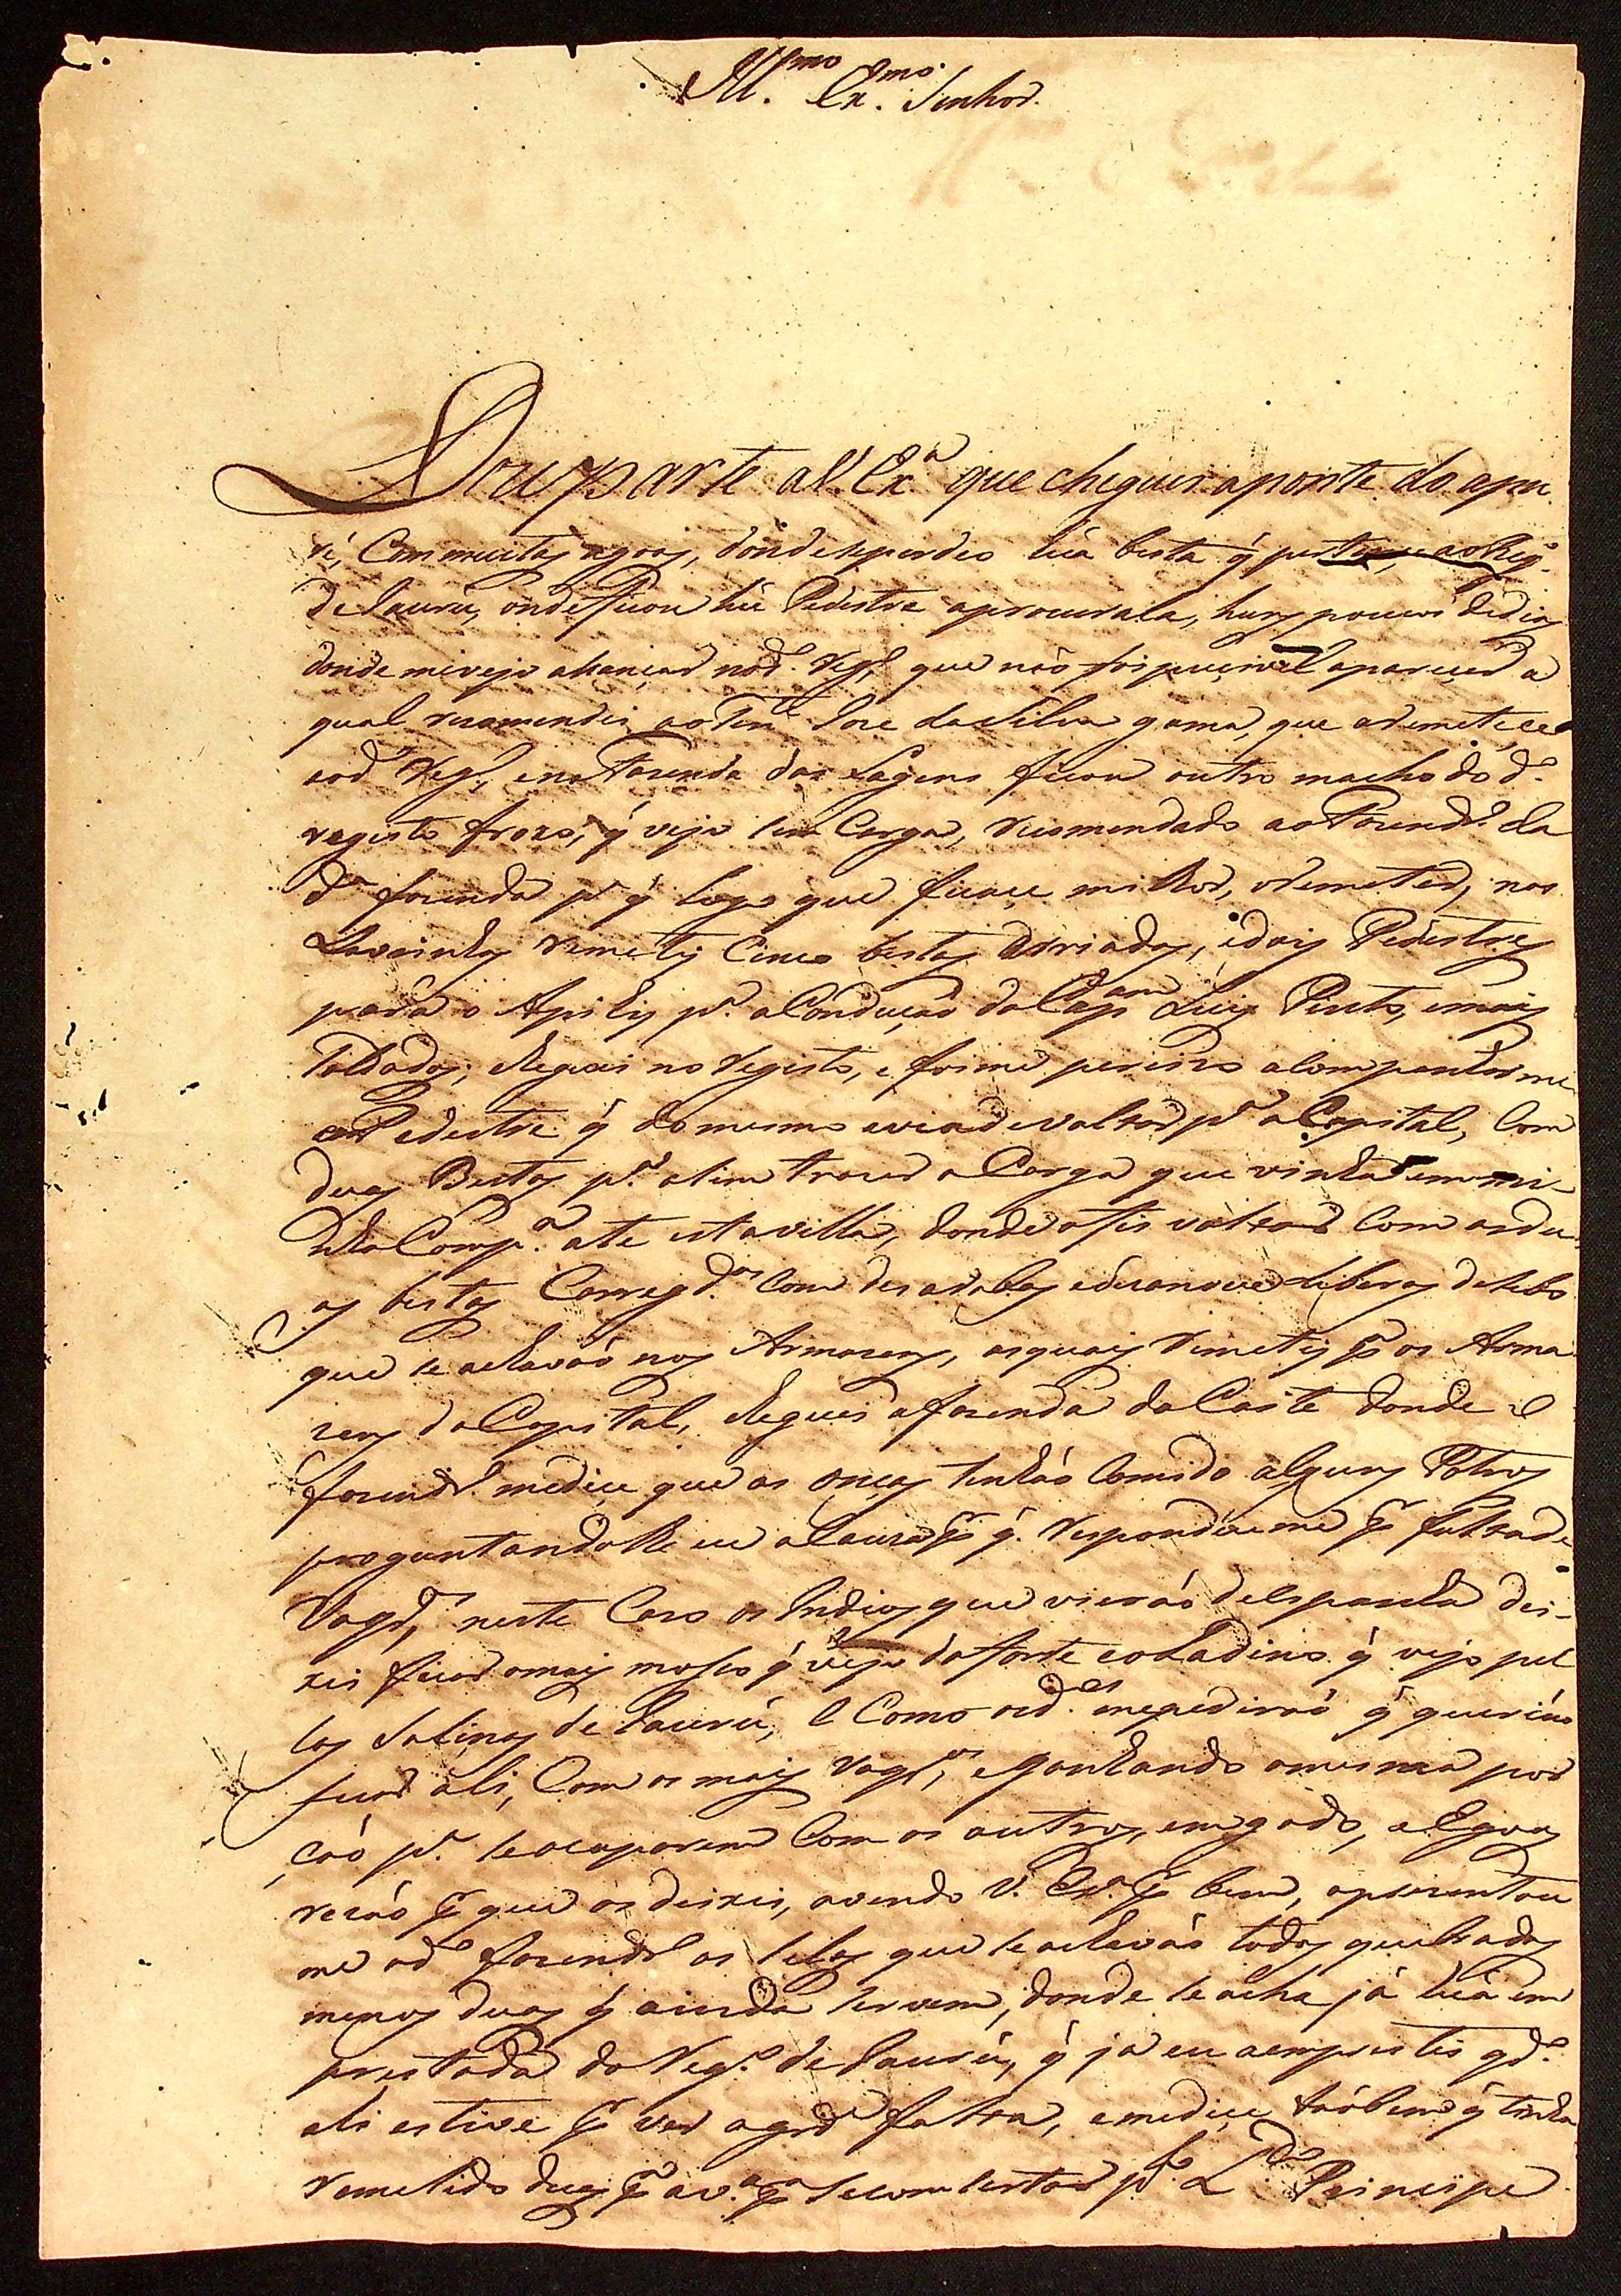 Ill.mo Ex.mo Senhor.
Dou parte a V. Ex.a que cheguei a ponte do apu
ré, Com muitas agoas, donde se perdeo hũa besta q̃ pertence ao Reg.o
de Jaurú, onde ficou hũ Pedestre aprocurala, huns poucos de dias
donde me vejo alcançar no d.o Reg.o, que não foi pucivel aparecer a
qual recomendei ao Ten.e Jose da Silva gama, que a remetece
ao d.o Reg.o, e na Fazenda das Lagens ficou outro macho do d.o
registo frozo, q̃ vejo sem Carga, recomendado ao Fazend.o da
d.a fazenda p.a q̃ logo que ficace milhor, o remeter, nas
Lavrinhas remeti Cinco bestas arriadas, e dois Pedestres
para o p.a a Condução do Cap.am Luis Pinto, e mais
Soldados; cheguei no Registo, e foime percizo acompanharme
o Pedestre q̃ do mesmo avia de voltar p.a a Capital, Com
duas Bestas p.a alim trazer a Carga que vinha em mi-
nha Comp.a ate esta villa, donde o fis voltar Com as du
as bestas Carregd.as Com des arobas e dezanove libras de sebo
que se achavão nos Armazens, as quais remeti p.a os Arma
zens da Capital, cheguei a fazenda da Caite donde o
fazend.o me dice que as onças tinhão Comido alguns Potros
proguntandolhe eu a Cauza por q̃. respondeume por falta de
Vaqr.os, neste Cazo os Indios que vierão de espanha dei-
xei ficar o mais moço q̃ vejo da forte e o Ladino q̃ vejo pel
las Salinas de Jaurú, e Como os d.os me pedirão q̃ querião
ficar ali, Com os mais Vaqr.os, e ganhando o mesma por
ção p.a se ocuparem Com os outros, em gado, e Egoas
rezão por que os deixei, avendo V. Ex.a por bem, aprezentou
me o d.o fazend.o as selas que se achavão todas quebradas
menos duas q̃ ainda servem, donde se acha já hũa em
prestada do Reg.o de Jaurú, q̃ já eu aemprestei qd.o
ali estive por ver a grd.e falta, e medice táobem q̃ tinha
remetido duas p.a se comsertar p.a o Principe